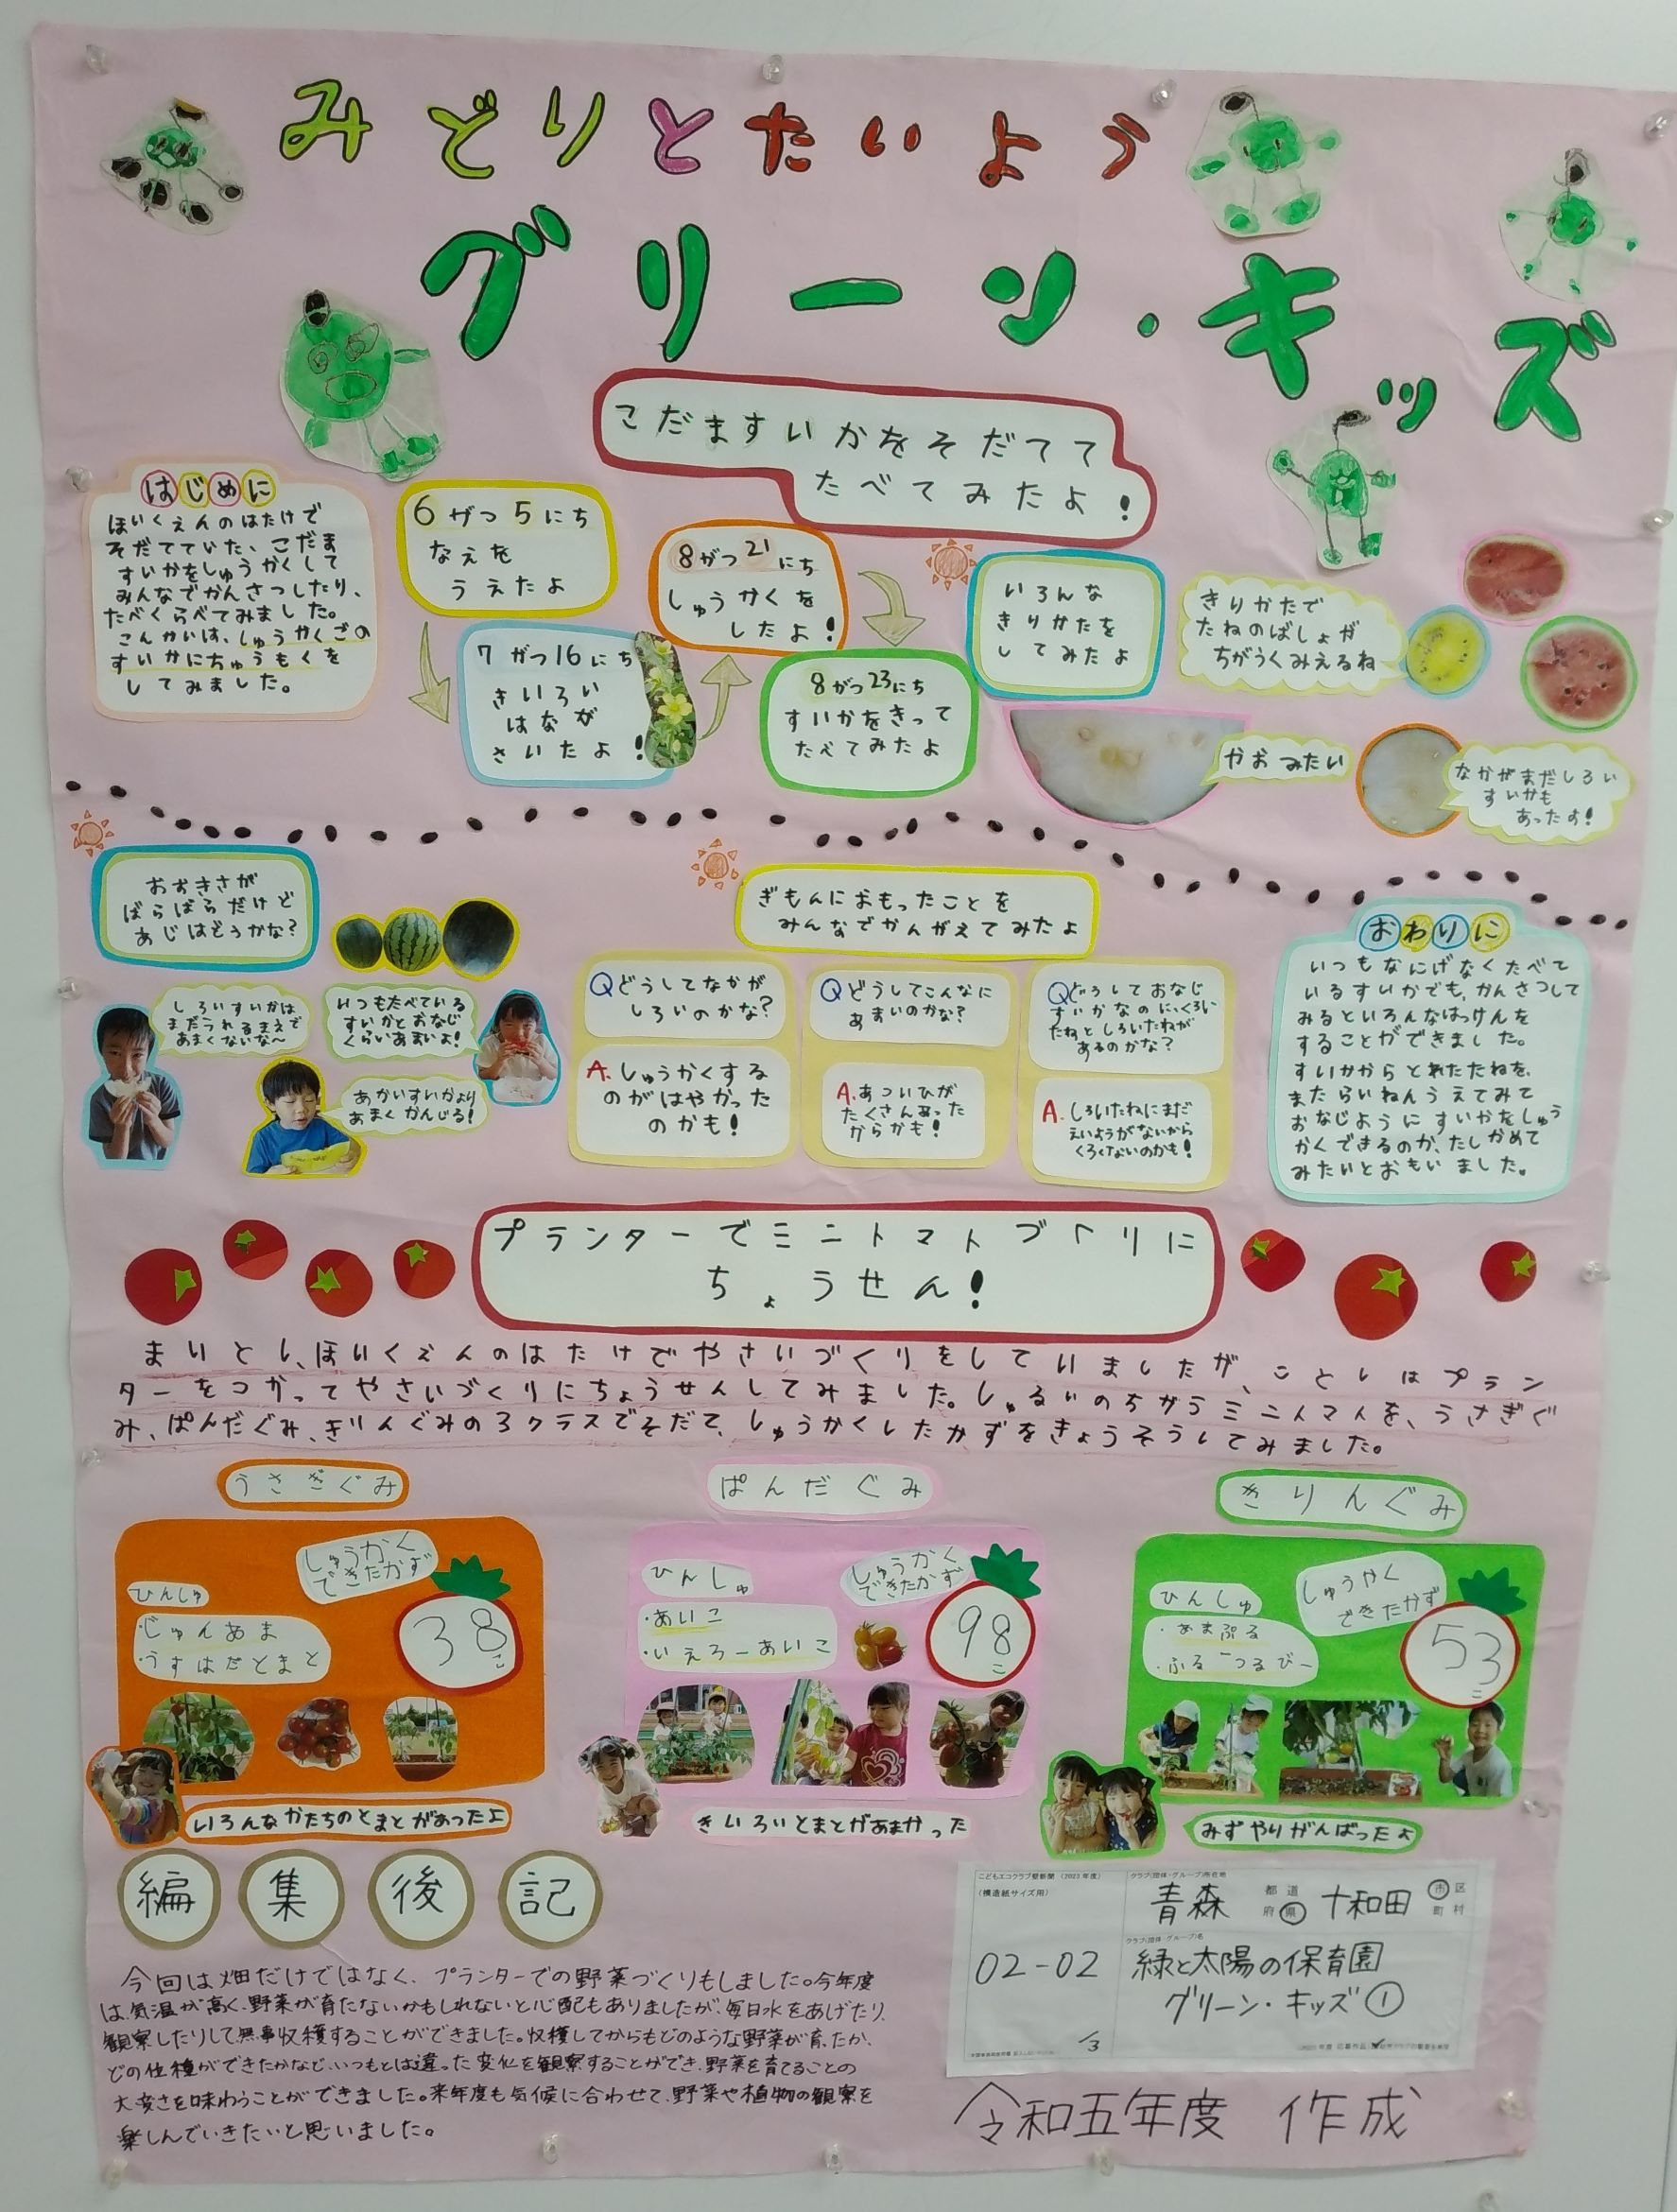 みどりとたいよう
グリーン・キッズ
こだますいかをそだてて
たべてみたよ!
はじめに
ほいくえんのはたけで
そだてていた、こだま
すいかをしゅうかくして
みんなでかんさつしたり、
たべくらべてみました。
こんかいは、しゅうかくごの
すいかにちゅうもくを
してみました。
6がつ5にち
なえを
うえたよ
7がつ16にち
きいろい
はなが
さいたよ!
8がつ21にち
しゅうかくを
したよ!
8がつ23にち
すいかをきって
たべてみたよ
いろんな
きりかたを
してみたよ
きりかたで
たねのばしょが
ちがうくみえるね
かおみたい
なかがまだしろい
すいかも
あったよ!
おおきさが
ばらばらだけど
あじはどうかな?
しろいすいかは
まだうれるまえで
あまくないな〜
いつもたべている
すいかとおなじ
くらいあまいよ!
あかいすいかより
あまくかんじる!
ぎもんにおもったことを
みんなでかんがえてみたよ
Qどうしてなかが
しろいのかな?
A.しゅうかくする
のがはやかった
のかも!
Qどうしてこんなに
あまいのかな?
A.あついひが
たくさんあった
からかも!
Qどうしておなじ
すいかなのに、くろい
たねとしろいたねが
あるのかな?
A.しろいたねにまだ
えいようがないから
くろくないのかも!
おわりに
いつもなにげなくたべて
いるすいかでも、かんさつして
みるといろんなはっけんを
することができました。
すいかからとれたたねを、
またらいねんうえてみて
おなじようにすいかをしゅう
かくできるのか、たしかめて
みたいとおもいました。
プランターでミニトマトづくりに
ちょうせん!
まいとし、ほいくえんのはたけでやさいづくりをしていましたが、ことしはプラン
ターをつかってやさいづくりにちょうせんしてみました。しゅるいのちがうミニトマトを、うさぎぐ
み、ぱんだぐみ、きりんぐみの3クラスでそだて、しゅうかくしたかずをきょうそうしてみました。
うさぎぐみ
しゅうかく
できたかず
ひんしゅ
・じゅんあま
・うすはだとまと
38
こ
いろんなかたちのとまとがあったよ
ぱんだぐみ
ひんしゅ
しゅうかく
できたかず
・あいこ
・いえろーあいこ
98
こ
きいろいとまとがあまかった
きりんぐみ
ひんしゅ
しゅうやく
できたかず
・あまぷる
・ふるーつるびー
53
こ
みずやりがんばったよ
編集後記
今回は畑だけではなく、プランターでの野菜づくりもしました。今年度
は、気温が高く、野菜が育たないかもしれないと心配もありましたが、毎日水をあげたり、
観察したりして無事収穫することができました。収穫してからもどのような野菜が育ったか、
どの位種ができたかなど、いつもとは違った変化を観察することができ、野菜を育てることの
大変さを味わうことができました。来年度も気候に合わせて、野菜や植物の観察を
楽しんでいきたいと思いました。
こどもエコクラブ壁新聞 (2023年度)
(模造紙サイズ用)
クラブ(団体・グループ)所在地
青森 都道府県 十和田 市区町村
クラブ(団体・グループ)名
02-02
緑と太陽の保育園
グリーン・キッズ①
1/3
令和五年度 作成